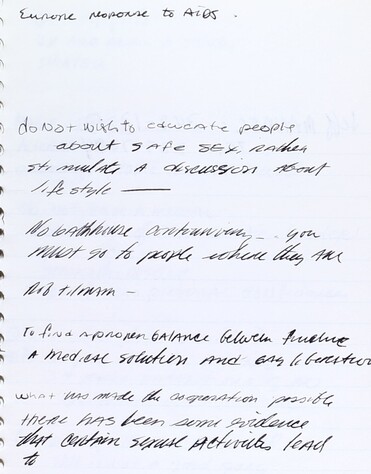 Europe response to AIDS.
do not wish to educate people
about SAFE SEX, rather
stimulate A discussion About
life style —
No bathhouse — you
must go to people where they are
Rob Tilman —
To find a proper balance between finding
A medical solution AND gay liberation
what has made the cooperation possible
there has been some evidence
that certain sexual activities lead
to